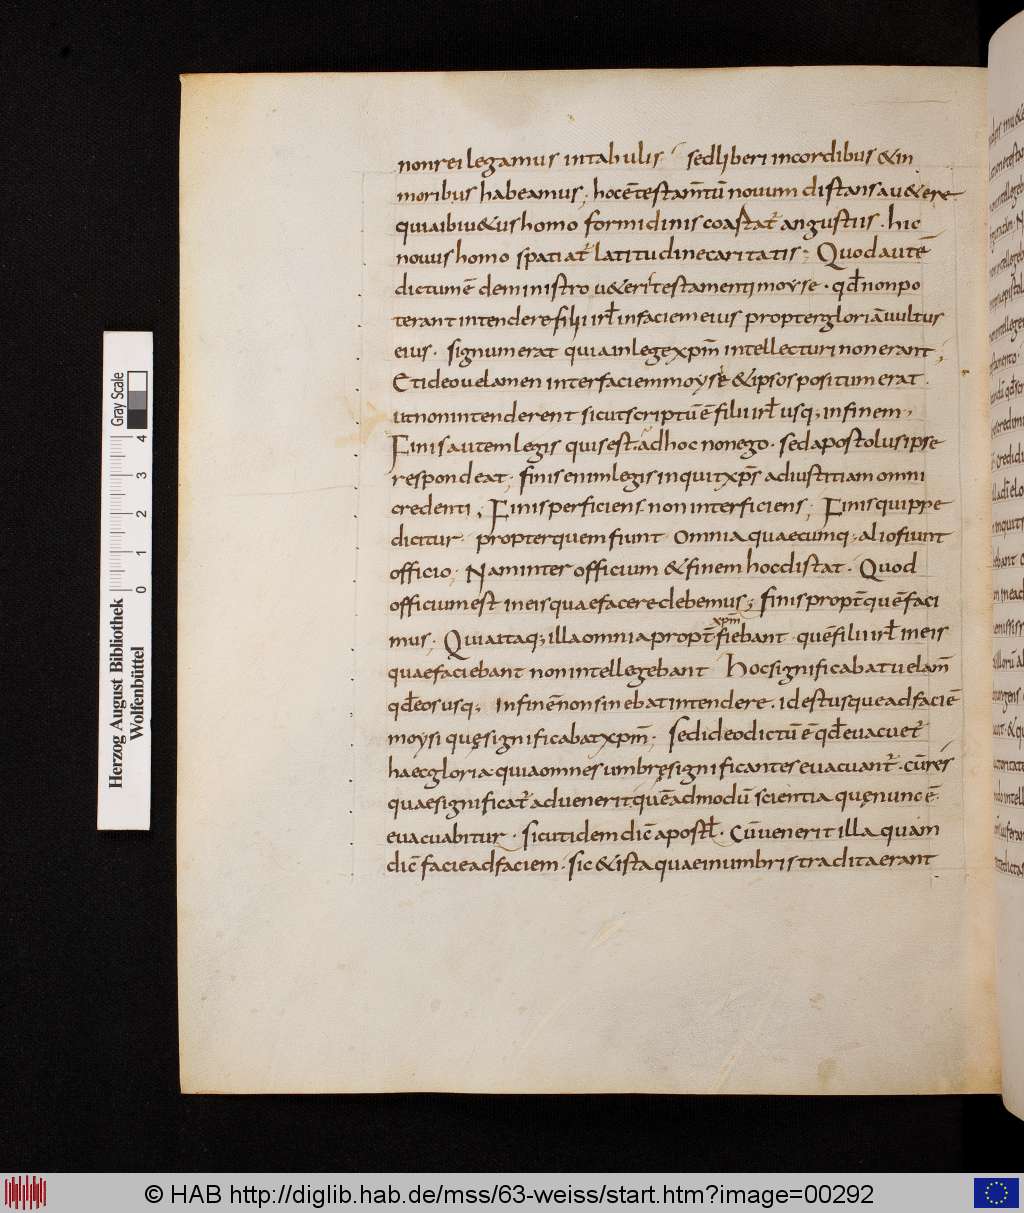 non rei legamus in tabulis sed liberi in cordibus & in
moribus habeamus; hoc ē testam̄tū nouum distans a u&ere
quia ibi u&us homo formidinis coastat̃ angustiis. hic
nouus homo spatiat̃ latitudine caritatis; Quod autē
dictum ē de ministro u&eri testamenti moyse. qd̄ non po
terant intendere filii isrl̄ in faciem eius propter gloriā uultus
eius. signum erat quia in lege xp̄m intellecturi non erant;
Et ideo uelamen inter faciem moysę & ipsos positum erat.
ut non intenderent sicut scriptū ē filii isrl̄ usq; in finem,
Finis autem legis quis est. ad hoc non ego. sed apostolus ipse
respondeat; finis enim legis inquit xp̄s ad iustitiam omni
credenti, Finis perficiens non interficiens; Finis quippe
dicitur propter quem fiunt omnia quaecumq; alio fiunt
officio; Nam inter officium & finem hoc distat. Quod
officium est in eis quae facere debemus; finis propt̄ quē faci
mus; Quia itaq; illa omnia propt̄ xp̄m fiebant quē filii isrl̄ in eis
quae faciebant non intellegebant Hoc significabat uelam̄
qd̄ eos usq; in finē non sinebat intendere. id est usque ad faciē
moysi quę significabat xp̄m; Sed ideo dictū ē qd̄ euacuet̃
haec gloria quia omnes umbrę significantes euacuant̃. cū res
quae significat̃ aduenerit quēadmodū scientia quę nunc ē
euacuabitur. sicut idem dic̄ apostl̄. Cū uenerit illa quam
dic̄ facie ad faciem. sic & ista quae in umbris tradita erant
Gray Scale
4
3
2
1
0
Herzog August Bibliothek
Wolfenbüttel
© HAB http://diglib.hab.de/mss/63-weiss/start.htm?image=00292